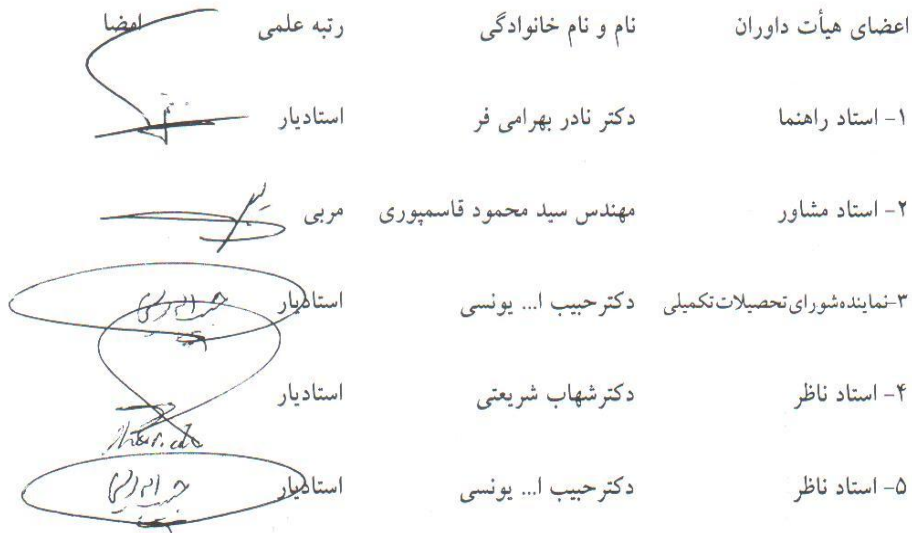 اعضای هیأت داوران نام و نام خانوادگی رتبه علمی امضا
۱- استاد راهنما دکتر نادر بهرامی فر استادیار
۲- استاد مشاور مهندس سید محمود قاسمپوری مربی
۳-نماینده‌شورای‌تحصیلات‌تکمیلی دکترحبیب ا... یونسی استادیار
۴- استاد ناظر دکترشهاب شریعتی استادیار
۵- استاد ناظر دکترحبیب ا... یونسی استادیار